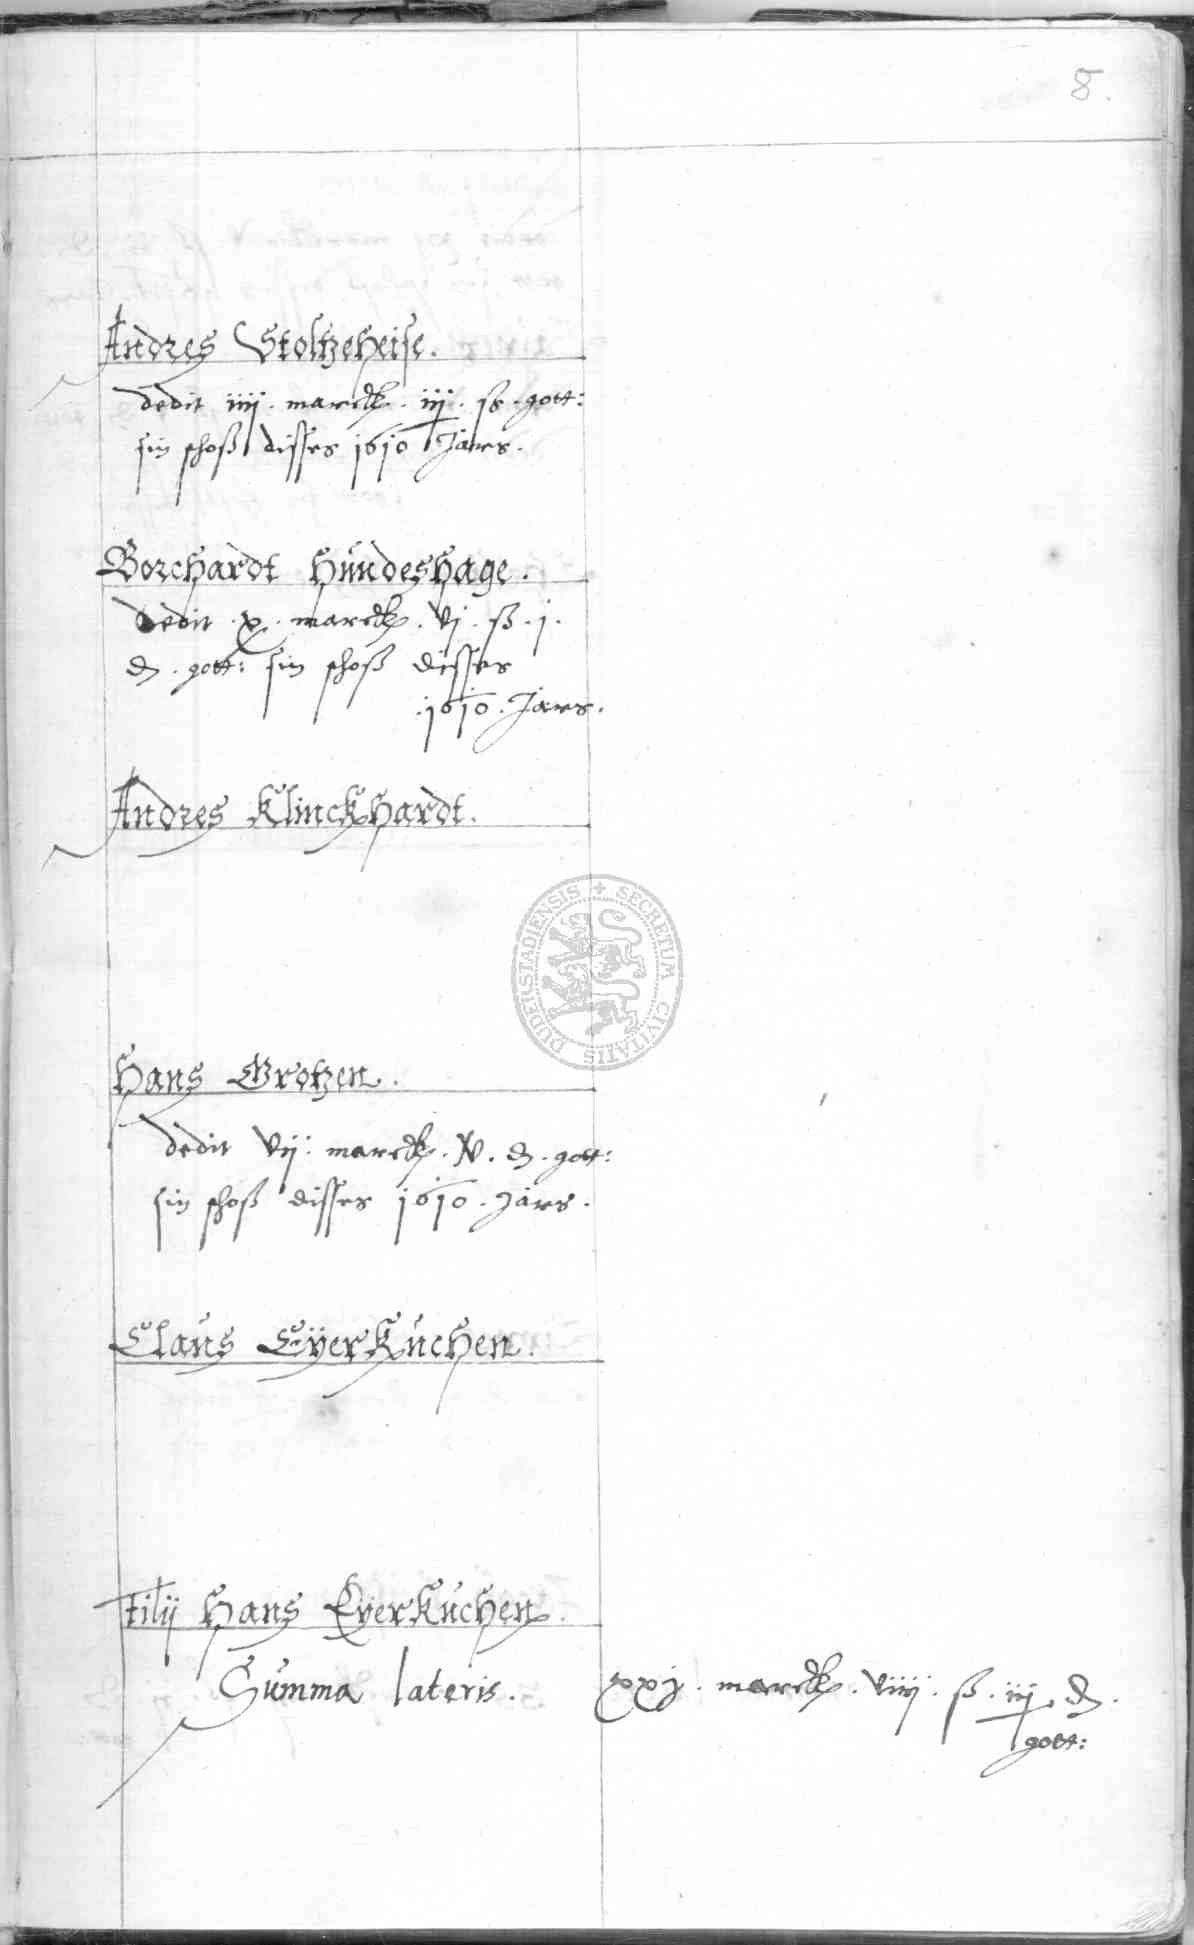 8.
Andres Stoltzeheise.
dedit iiij. marck. iij. ß. gott:
sin schoß disses 1610 Jars.
Borchardt Hundeshage.
dedit x. marck. vj. ß. j.
d. gott: sin schoß disses
1610. Jars.
Andres Klinckhardt.
DUDERSTADIENSIS + SECRETUM CIVITATIS
Hans Grotzen.
dedit vij. marck. d. gott:
sin schoß disses 1610. Jars.
Claus Eÿerkuchen.
Filij Hans Eÿerkuchen.
Summa lateris. xxj. marck. viiij. ß. iij. d.
gott: